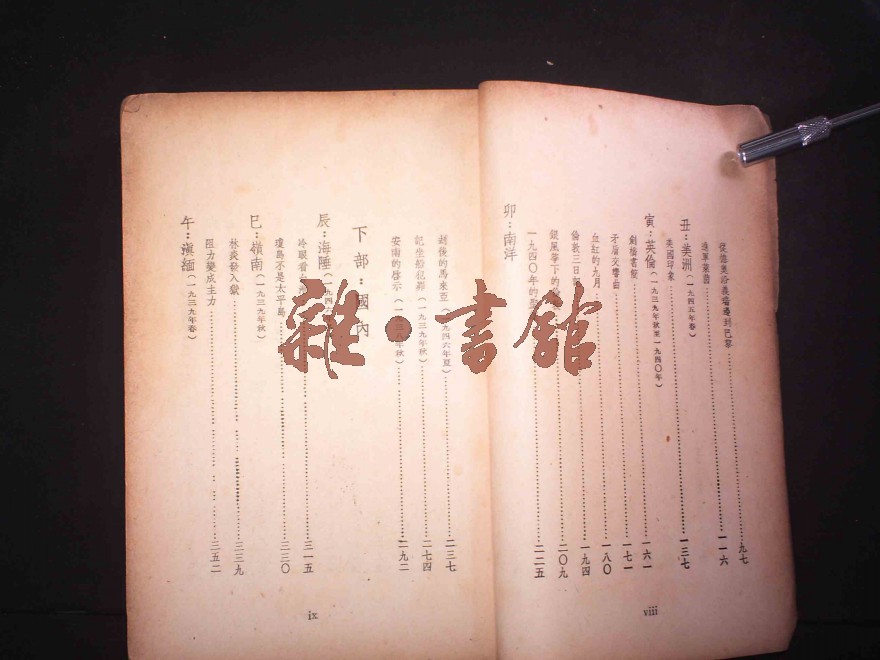 進軍萊茵……一一六
丑：美洲（一九四五年春）
美國印象……一三七
寅：英倫（一九三九年秋至一九四〇年）
劍橋書簡……一六一
矛盾交響曲……一七一
血紅的九月……一八〇
倫敦三日……一九四
銀風箏下的……二〇九
一九四〇年的……二二五
卯：南洋
劫後的馬來亞（一九四六年夏）……二三七
記坐船犯罪（一九三九年秋）……二七四
安南的啓示（一九三八年秋）……二九二
下部：國內
辰：海陲（一九四
冷眼看台灣……三一五
瓊島不是太平島……三三〇
巳：嶺南（一九三九年秋）
林炎發入獄……三三九
阻力變成主力……三五二
午：滇緬（一九三九年春）
viii
ix
雜·書館